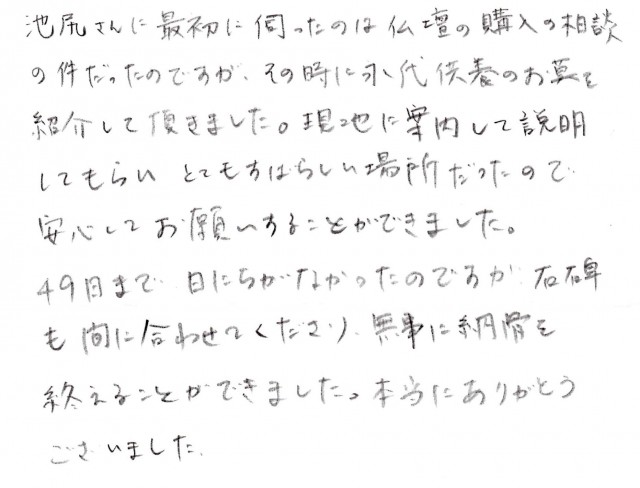 池尻さんに最初に伺ったのは仏壇の購入の相談
の件だったのですが、その時に永代供養のお墓を
紹介して頂きました。現地に案内して説明
してもらい とてもすばらしい場所だったので
安心してお願いすることができました。
49日まで 日にちがなかったのですが 石碑
も間に合わせてくださり、無事に納骨を
終えることができました。本当にありがとう
ございました.